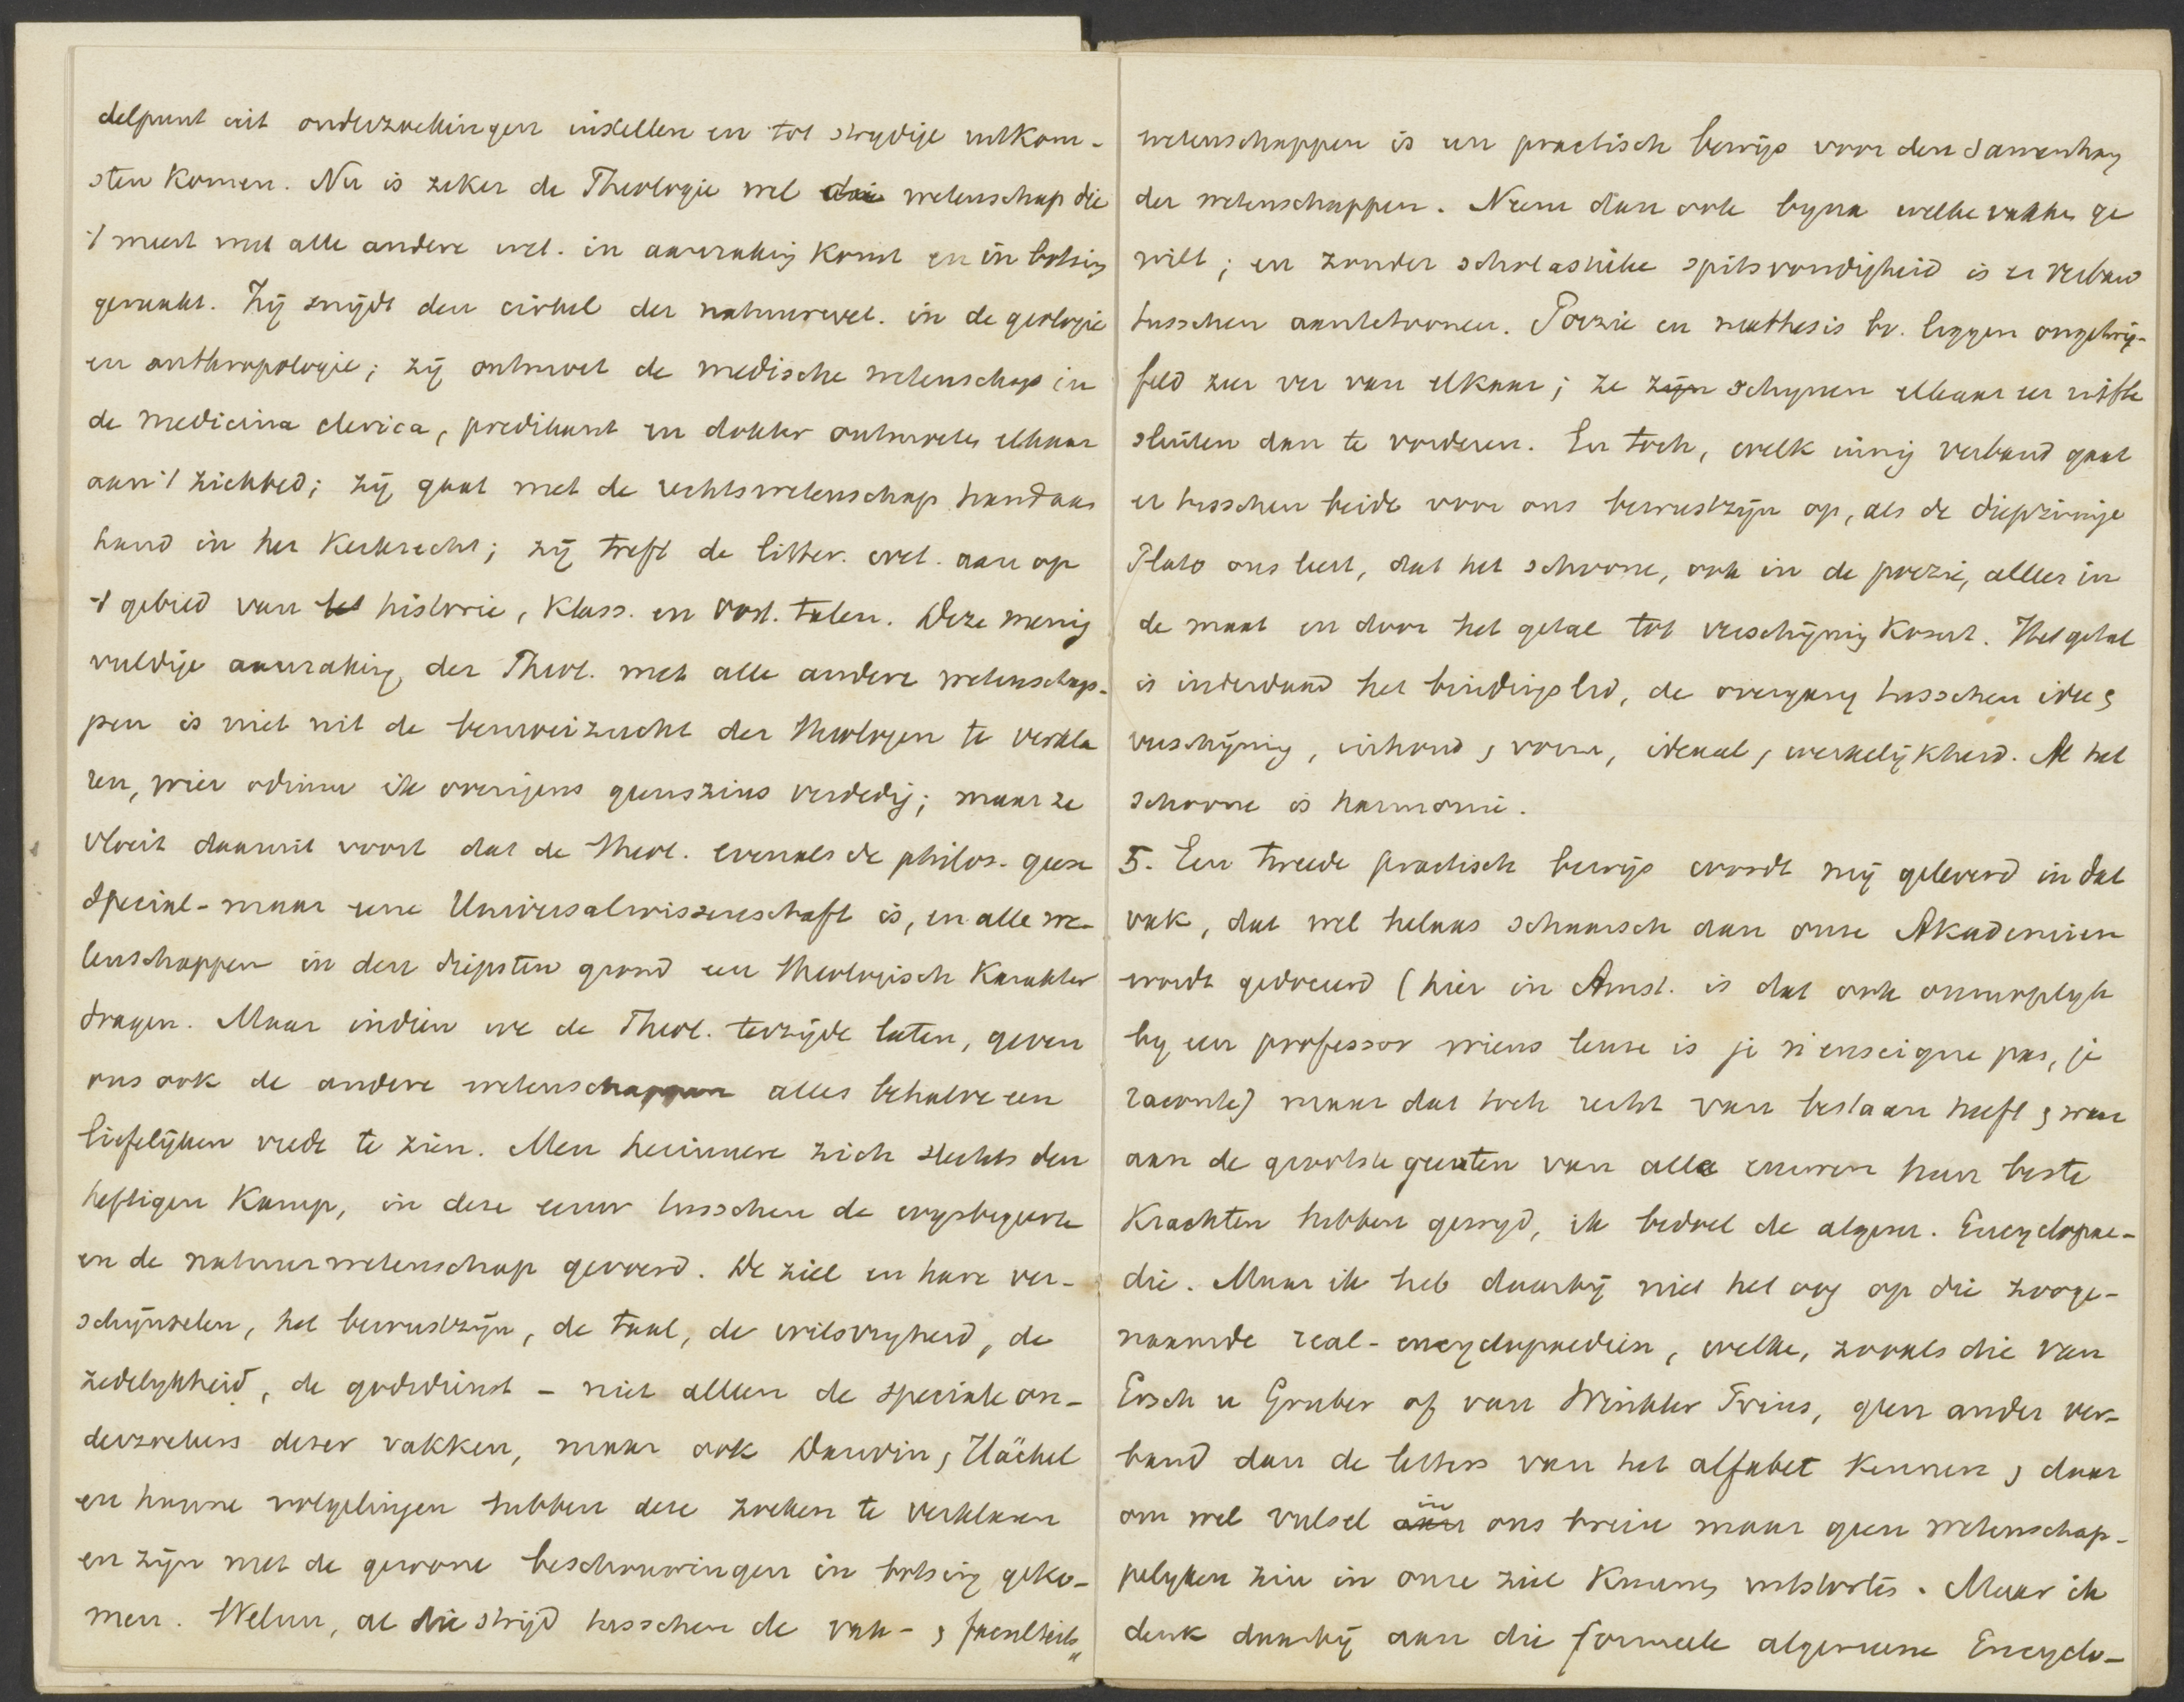 delpunt uit onderzoekingen instellen en tot strydige uitkom-
sten komen. Nu is zeker de Theologie wel die wetenschap die
't meest met alle andere wet. in aanraking komt en in botsing
geraakt. Zij snijdt den cirkel der natuurwet. in de geologie
en anthropologie; zij ontmoet de medische wetenschap in
de medicina clerica, predikant en dokter ontmoeten elkaar
aan 't ziekbed; zij gaat met de rechtswetenschap hand aan
hand in het Kerkrecht; zij treft de litter. wet. aan op
't gebied van historie, klass. en oost. talen. Deze menig
vuldige aanraking der Theol. met alle andere wetenschap-
pen is niet uit de bemoeizucht der theologen te verkla
ren, wier odium ik overigens geenszins verdedig; maar ze
vloeit daaruit voort dat de theol. evenals de philos. geen
special- maar eene Universalwissenschaft is, en alle we-
tenschappen in den diepsten grond een theologisch karakter
dragen. Maar indien we de Theol. terzijde laten, geven
ons ook de andere wetenschappen alles behalve een
liefelijken vrede te zien. Men herinnere zich slechts den
heftigen kamp, in deze eeuw tusschen de wysbegeerte
en de natuurwetenschap gevoerd. De ziel en hare ver-
schijnselen, het bewustzijn, de taal, de wilsvryheid, de
zedelykheid, de godsdienst - niet alleen de speciale on-
derzoekers dezer vakken, maar ook Darwin, Häckel
en hunne volgelingen hebben deze zoeken te verklaren
en zijn met de gewone beschouwingen in botsing geko-
men. Welnu, al die strijd tusschen de vak- & faculteits"
wetenschappen is een practisch bewijs voor den samenhang
der wetenschappen. Neem dan ook byna welke vakken ge
wilt; en zonder scholastieke spitsvondigheid is er verband
tusschen aantetoonen. Poezie en mathesis bv. liggen ongetwij-
feld zeer ver van elkaar; ze zijn schynen elkaar eer uitte
sluiten dan te vorderen. En toch, welk innig verband gaat
er tusschen beide voor ons bewustzijn op, als de diepzinnige
Plato ons leert, dat het schoone, ook in de poezie, alleen in
de maat en door het getal tot verschijning komt. Het getal
is inderdaad het bindingslid, de overgang tusschen idee &
verschijning, inhoud & vorm, ideaal & werkelijkheid. Al het
schoone is harmonie.
5. Een tweede practisch bewijs wordt mij geleverd in dat
vak, dat wel helaas schaarsch aan onze Akademien
wordt gedoceerd (hier in Amst. is dat ook onmogelyk
by een professor wiens leuze is je n'enseigne pas, je
raconte) maar dat toch recht van bestaan heeft & waar
aan de grootste geesten van alle eeuwen hun beste
krachten hebben gewyd, ik bedoel de algem. Encyclopae-
die. Maar ik heb daarbij niet het oog op die zooge-
naamde real-encyclopaedien, welke, zooals die van
Ersch u Gruber of van Winkler Prins, geen ander ver-
band dan de letters van het alfabet kennen & daar
om wel vulsel aan in ons brein maar geen wetenschap-
pelyken zin in onze ziel kunnen uitstorten. Maar ik
denk daarbij aan die formeele algemeene Encyclo-